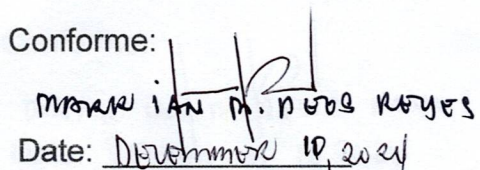 Conforme:
MARK IAN M. DELOS REYES
Date: DECEMBER 10, 2024